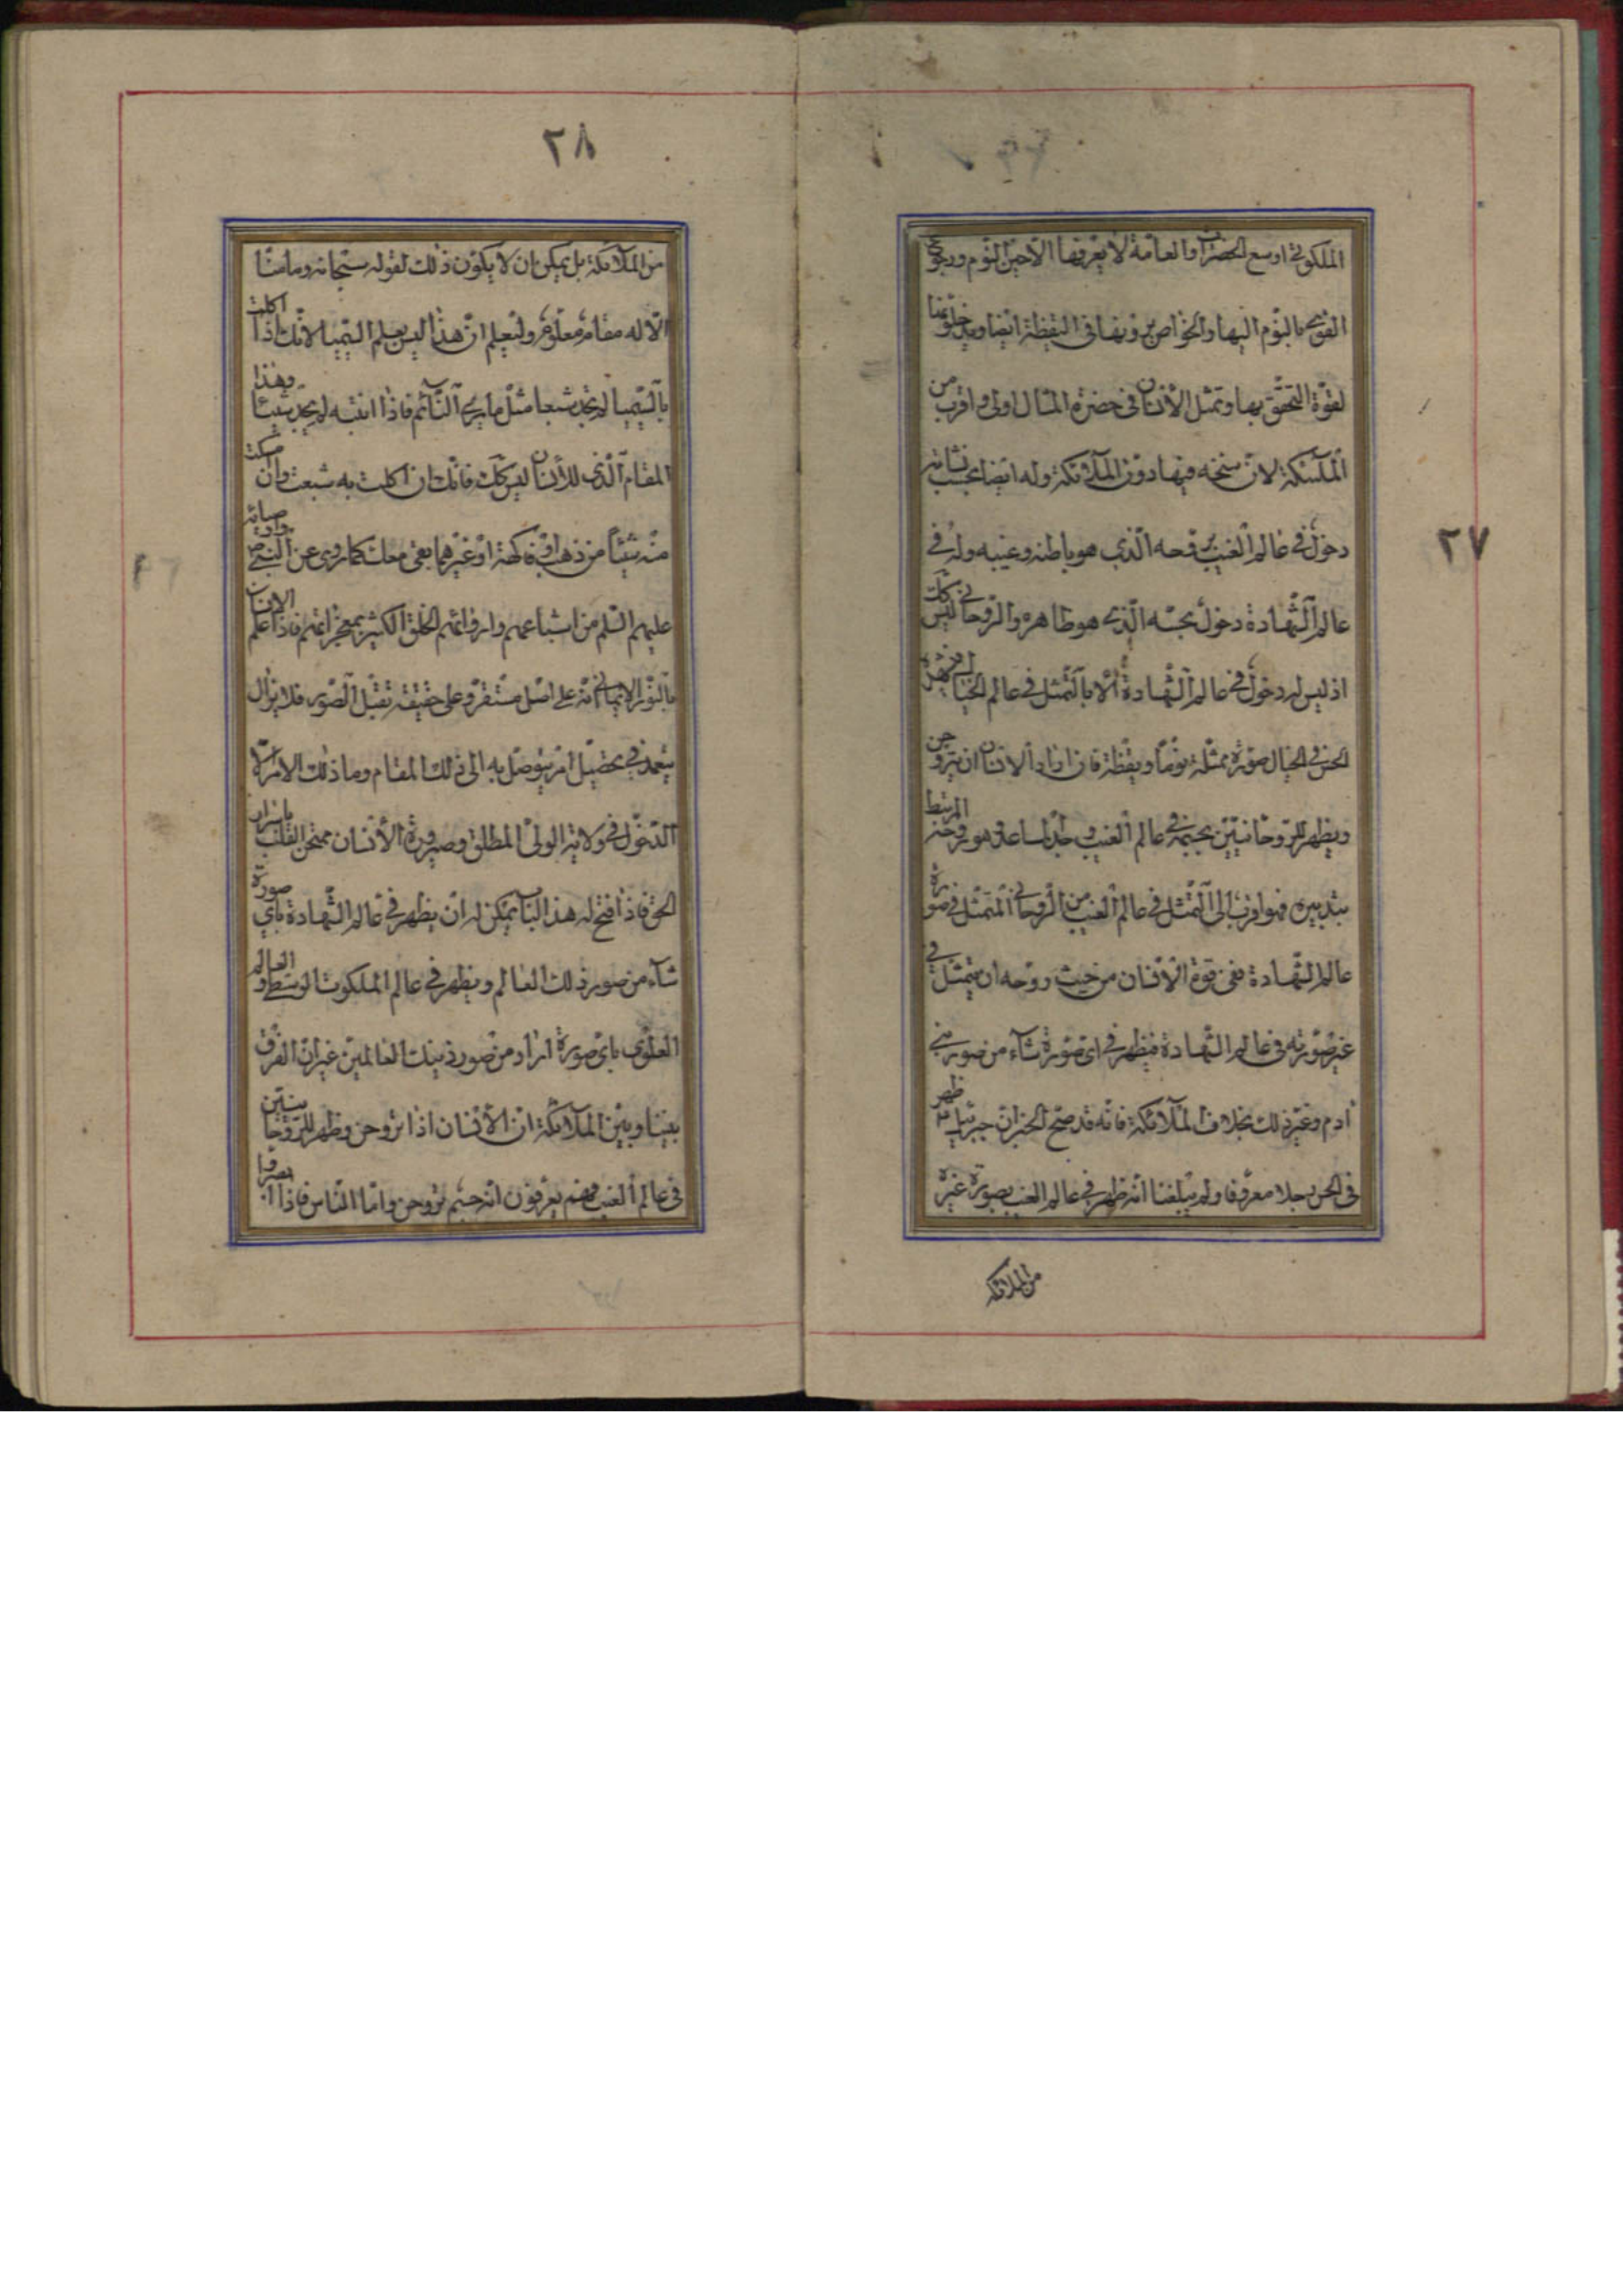 ٢٧
الملكوتي اوسع الحضرات والعامة لا يعرفها الا حين النوم ورجوع
القوى بالنوم اليها والخواص يرونها فى اليقظة ايضا ويدخلونها
لقوة التحقق بها وتمثل الانسان فى حضرة المثال اولى واقرب من
الملائكة لان سنخه فيها دون الملائكة وله ايضا بحسب نشاته
دخول فى عالم الغيب بروحه الذي هو باطنه وغيبه وله فى
عالم الشهادة دخول بجسه الذي هو ظاهره والروحاني ليس كك
اذ ليس له دخول في عالم الشهادة الا بالتمثل فى عالم الخيال
الحس فى الخيال صورة ممثلة نوما ويقظة فان اراد الانسان ان يتروحن
ويظهر للروحانيين بجسمه في عالم الغيب وجد المساعد وهو روحه المرتبط
بتدبيره فهو اقرب الى التمثل فى عالم الغيب من الروحاني المتمثل فى صورة
عالم الشهادة ففى قوة الانسان من حيث روحه ان يتمثل في
غير صورته فى عالم الشهادة فيظهر فى اى صورة شاء من صور بني
ادم وغير ذلك بخلاف الملائكة فانه قد صح الخبر ان جبرئيل ظهر
فى الحس رجلا معروفا ولم يبلغنا انه ظهر في عالم الغيب بصورة غيره
من الملائكه
٢٨
من الملائكة بل يمكن ان لا يكون ذلك لقوله سبحانه وما منا
الا له مقام معلوم وليعلم ان هذا ليس بعلم السيميا لانك اذا اكلت
بالسيميا لم تجد شبعا مثل ما يرى النائم فاذا انتبه لم يجد شيئا وهذا
المقام الذى للانسان ليس كك فانك ان اكلت به شبعت وان مسكت
منه شيئا من ذهب او فاكهة او غيرهما بقى معك كما روى عن النبي ص
عليهم السلم من اشباعهم وارواءهم الخلق الكثير بمعجزاتهم فاذا علم الانسان
بالنور الايماني انه على اصل مستقر وعلى حقيقة تقبل الصور فلا يزال
يتعمد في تحصيل امر يتوصل به الى ذلك المقام وما ذلك الامر الا
الدخول فى ولاية الولى المطلق وصيرورة الانسان ممتحن القلب
الحق فاذا فتح له هذا الباب يمكن له ان يظهر فى عالم الشهادة باي صورة
شاء من صور ذلك العالم ويظهر فى عالم الملكوت الوسطى و العالم
العلوى باي صورة اراد من صور ذينك العالمين غير ان الفرق
بيننا وبين الملائكة ان الانسان اذا تروحن وظهر للروحانيين
فى عالم الغيب فهم يعرفون انه جسم تروحن واما الناس فاذا